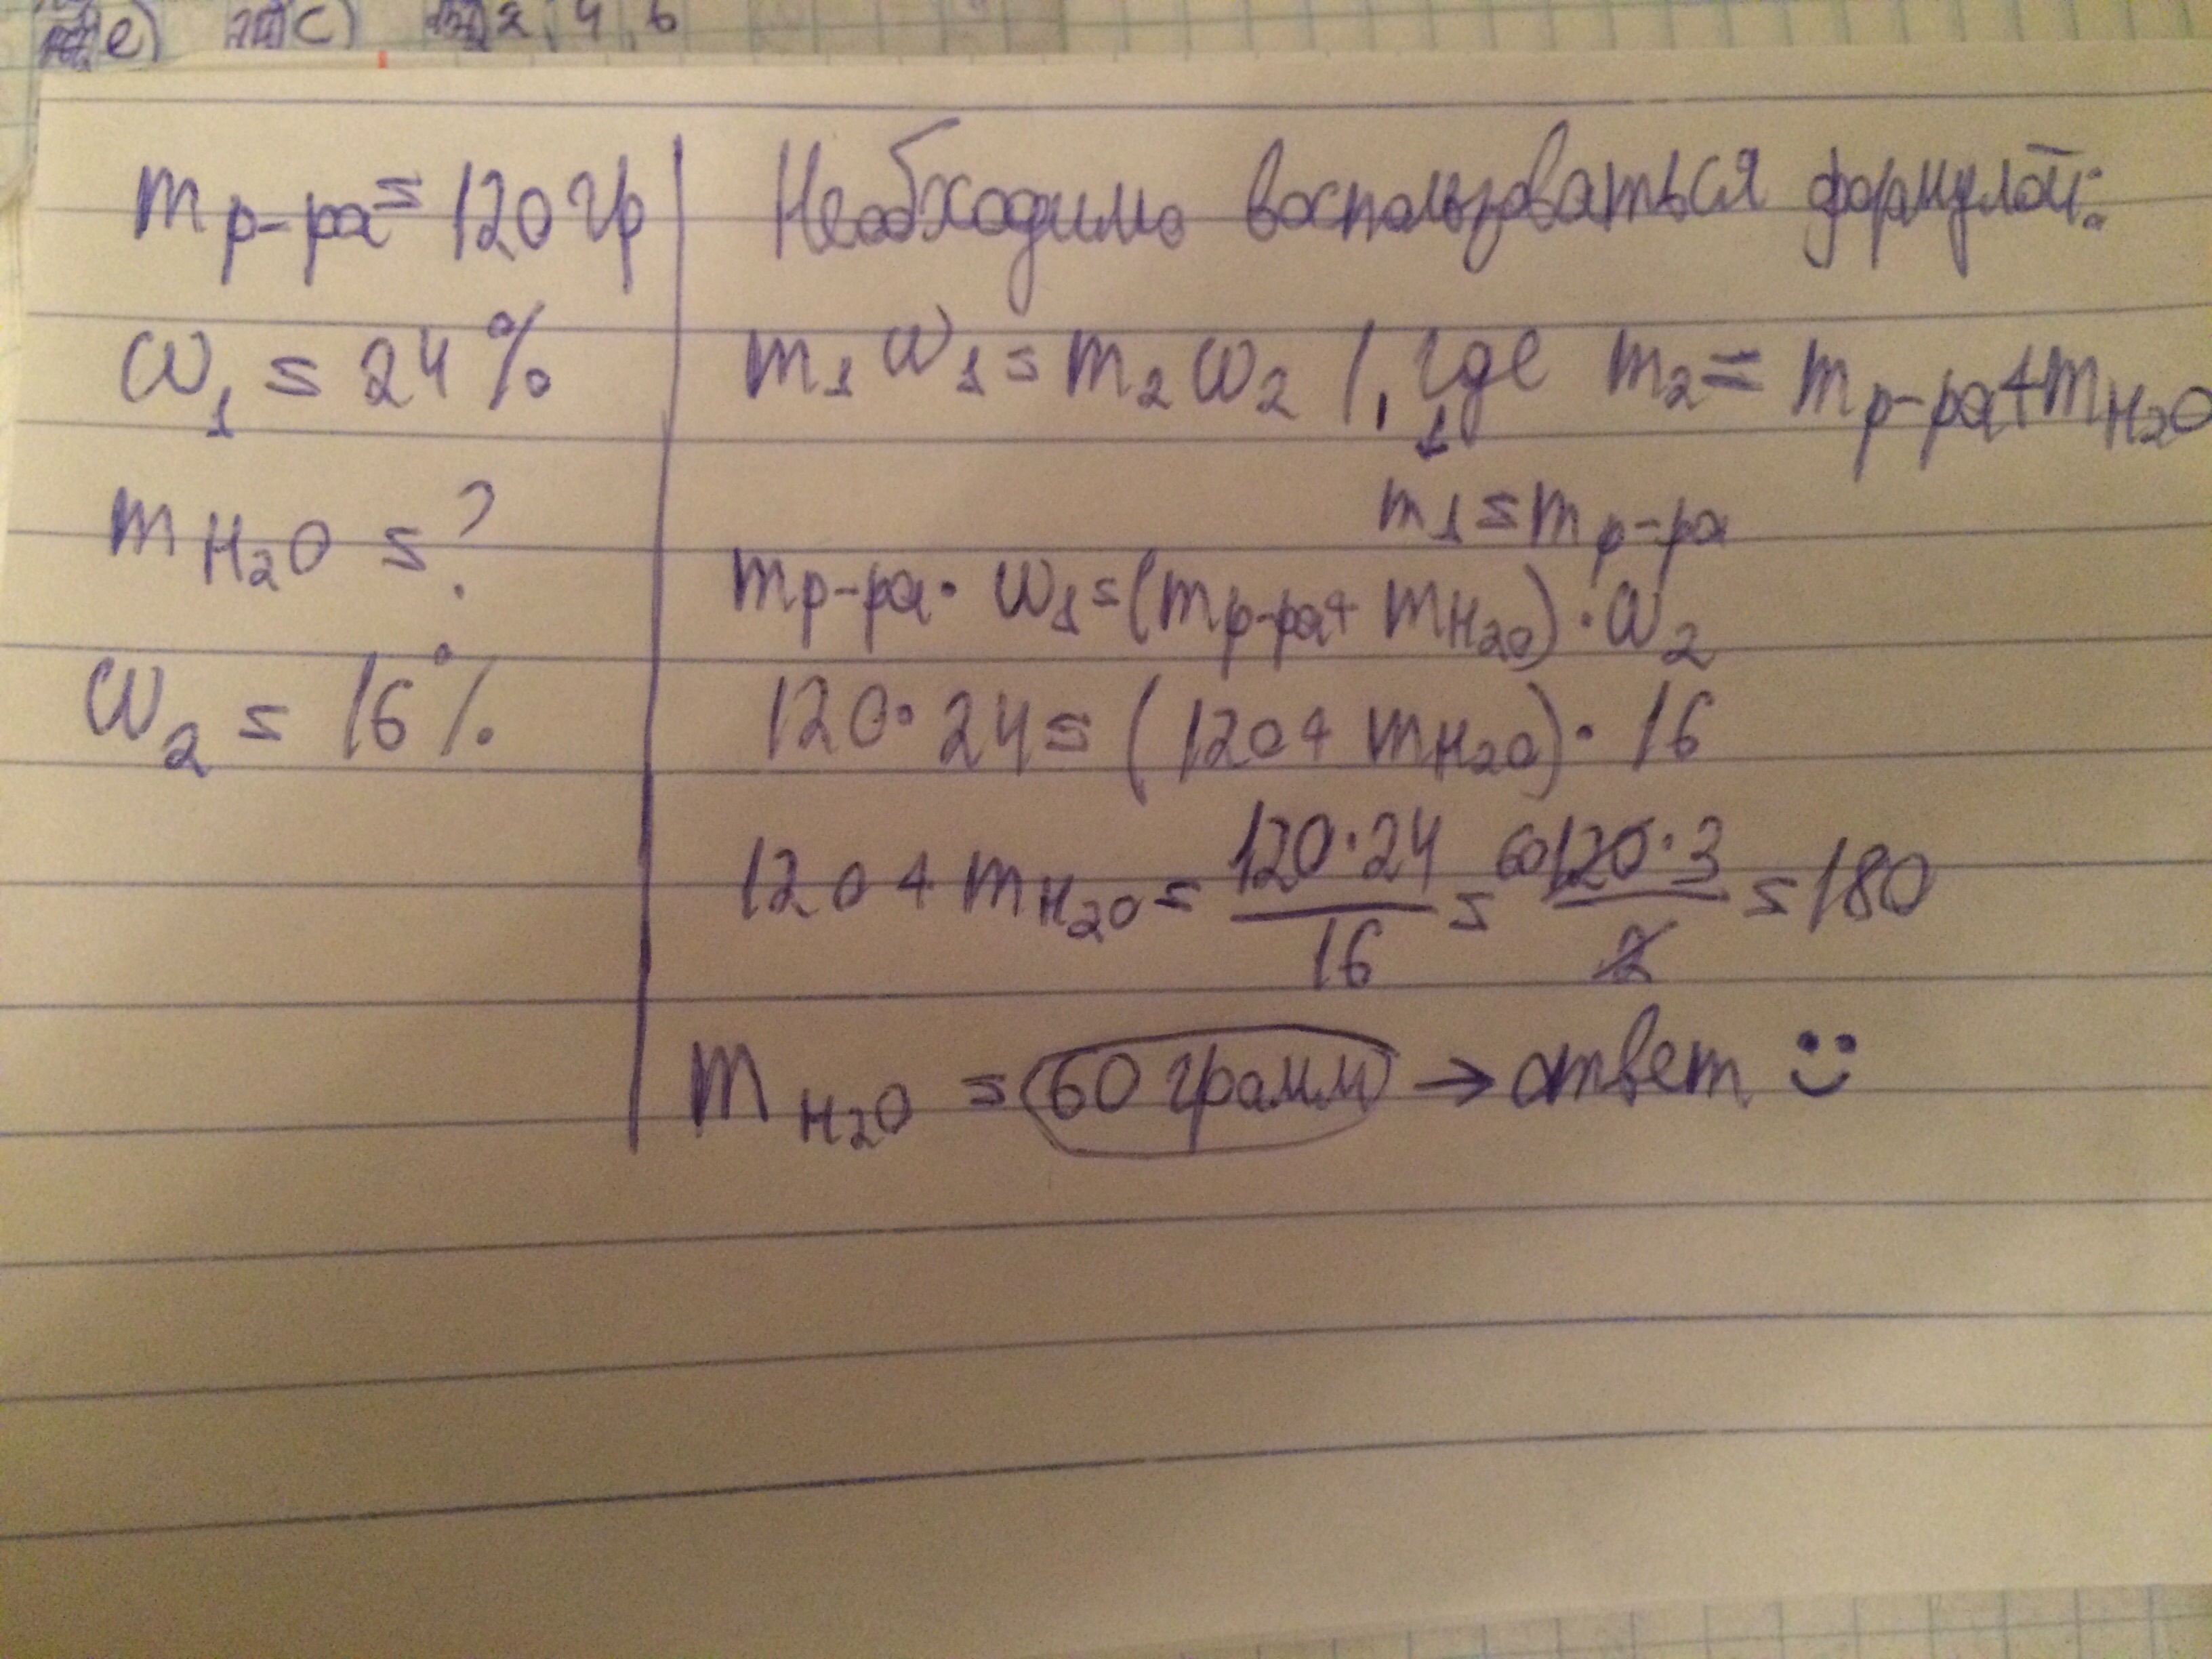 e) c) 2, 4, 6
m р-ра = 120 гр
ω₁ = 24 %
m H₂O = ?
ω₂ = 16 %
Необходимо воспользоваться формулой:
m₁ ω₁ = m₂ ω₂ , где m₂ = m р-ра + m H₂O
m₁ = m р-ра
m р-ра · ω₁ = (m р-ра + m H₂O) · ω₂
120 · 24 = (120 + m H₂O) · 16
120 + m H₂O = 120·24/16 = 60 120·3/2 = 180
m H₂O = 60 грамм → ответ :)